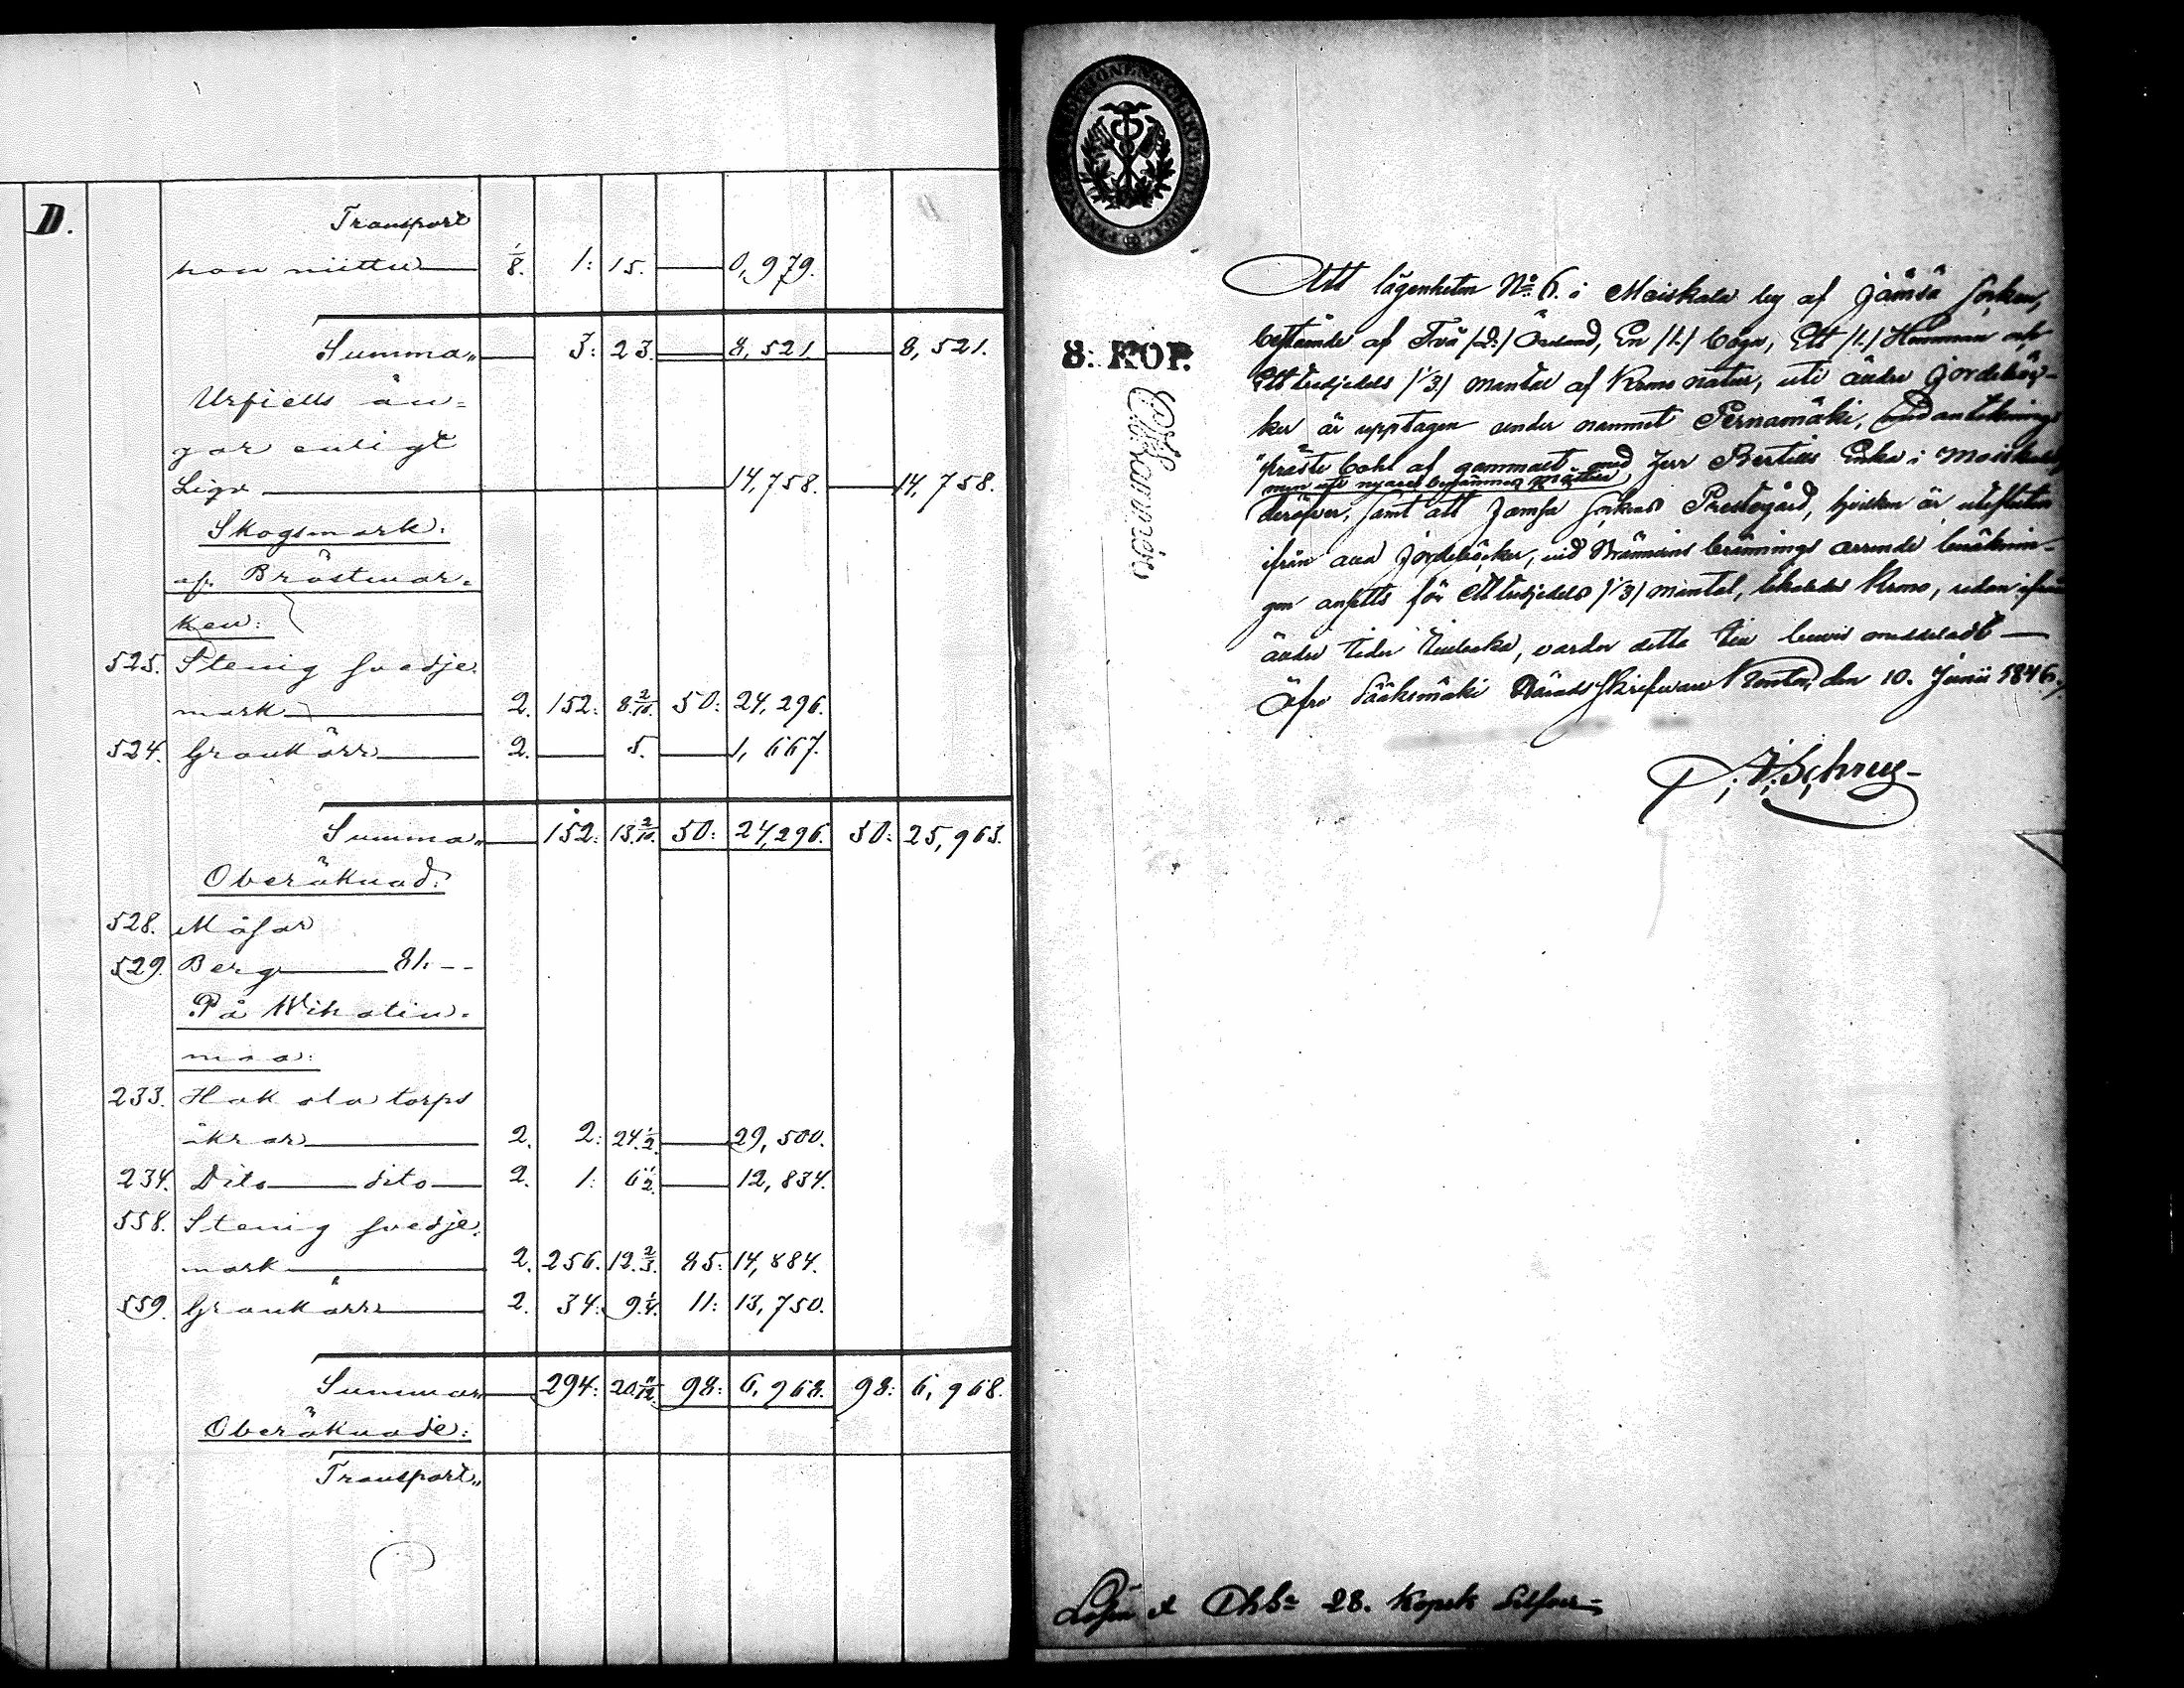 D.
Transport
han niittu 1/8. 1: 15. 0,979.
Summa" 3: 23. 8,521 8,521.
Urfiells än=
gar enligt
Liga 14,758. 14,758.
Skogsmark:
af Bröstmar=
ken:
525. Stenig svedje
mark 2. 152: 8.2/10. 50: 24,296.
524. Grankärr 2. 5. 1,667.
Summa" 152: 13.2/10. 50: 24,296. 50: 25,963.
Oberäknad:
528. Måsar
529. Berg 81.--
På Wihatin=
maa:
233. Hakola torps
åkrar 2. 2: 24.1/2. 29,500.
234. Dito dito 2. 1: 6 1/2. 12,834.
558. Stenig svedje=
mark 2. 256. 12.2/3. 85: 14,884.
559. Grankärr 2. 34: 9.1/4. 11: 13,750.
Summa" 294: 20.11/12. 98: 6,968. 98: 6,968.
Oberäknade:
Transport"
8: KOP.
Att lägenheten No 6. i Maiskala by af Jämsä Socken,
bestående af Två /2:/ Öresland, En /1./ Ett /1./ Hemman och
Ett tredjedels /1/3/ mantal af Krono natur, uti äldre Jordebö-
ker är upptagen under namnet Pernamäki, med antekning
af gammalt med Jerr Bertills Enka i Maiskala,
men uti nyare
deröfver, samt att Jamsa Sockens Prestegård, hvilken är utesluten
ifrån alla Jordeböcker, vid Brännvins brännings arrende beräknin-
gen ansetts för Ett tredjedels /1/3/ mantal, likaledes Krono, redan ifrån
äldre tider tillbaka, varder detta till bewis meddeladt
Öfre Sääksmäki Härads Skrifware Kontor, den 10. Junii 1846.
Lösen a Chta 28. Kopek Silfver